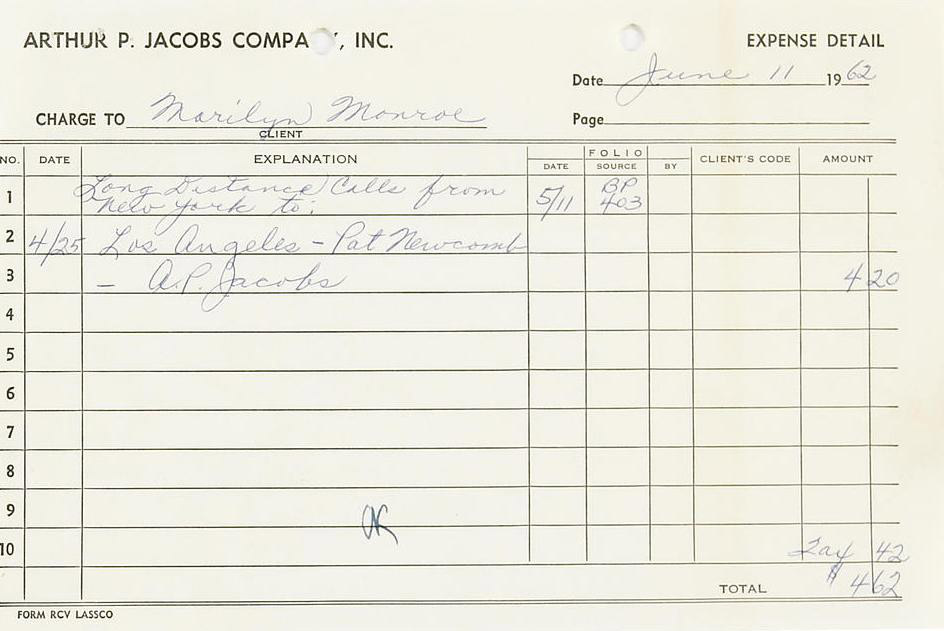 ARTHUR P. JACOBS COMPA Y, INC.
EXPENSE DETAIL
Date June 11 1962
CHARGE TO Marilyn Monroe
Page
CLIENT
NO. DATE EXPLANATION FOLIO CLIENT'S CODE AMOUNT
DATE SOURCE BY
1 Long Distance Calls from New York to: 5/11 BP 403
2 4/25 Los Angeles - Pat Newcomb
3 - A.P. Jacobs 4 20
4
5
6
7
8
9 OK
10 Tax 42
TOTAL $ 4 62
FORM RCV LASSCO